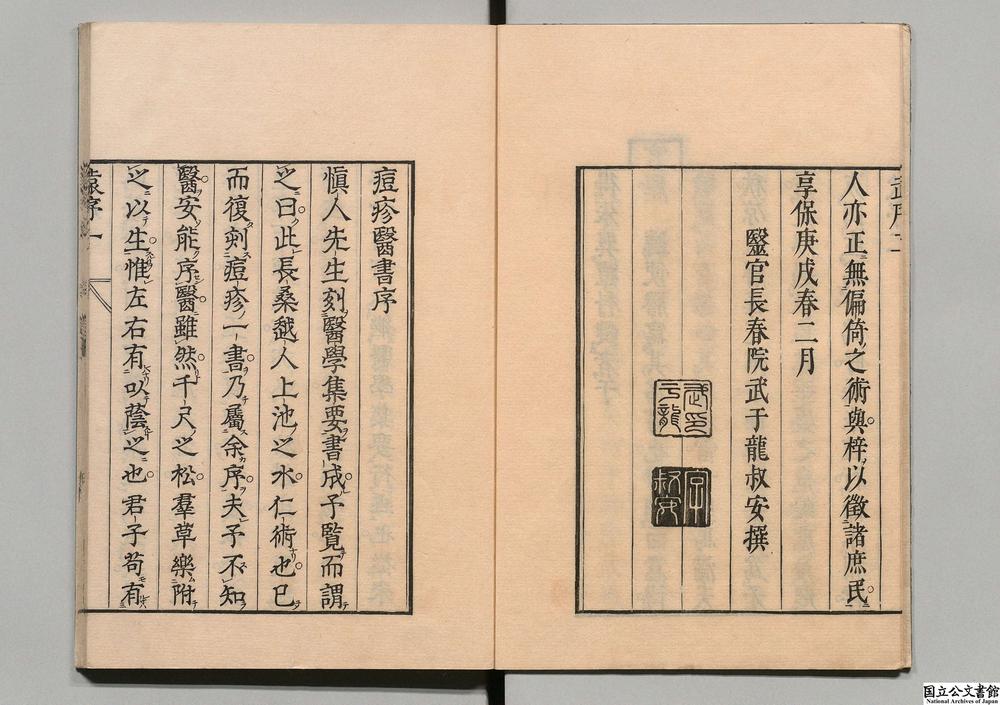 人亦正無偏倚之術與梓以徵諸庶民
享保庚戌春二月
毉官長春院武于龍叔安撰
武印
于龍
字
叔安
痘疹醫書序
愼人先生刻醫學集要書成予覧而謂
之曰此長桑越人上池之水仁術也已
而復刻痘疹一書乃屬余序夫予不知
醫安能序醫雖然千尺之松羣草樂附
之以生惟左右有以蔭之也君子苟有
序一
国立公文書館
National Archives of Japan